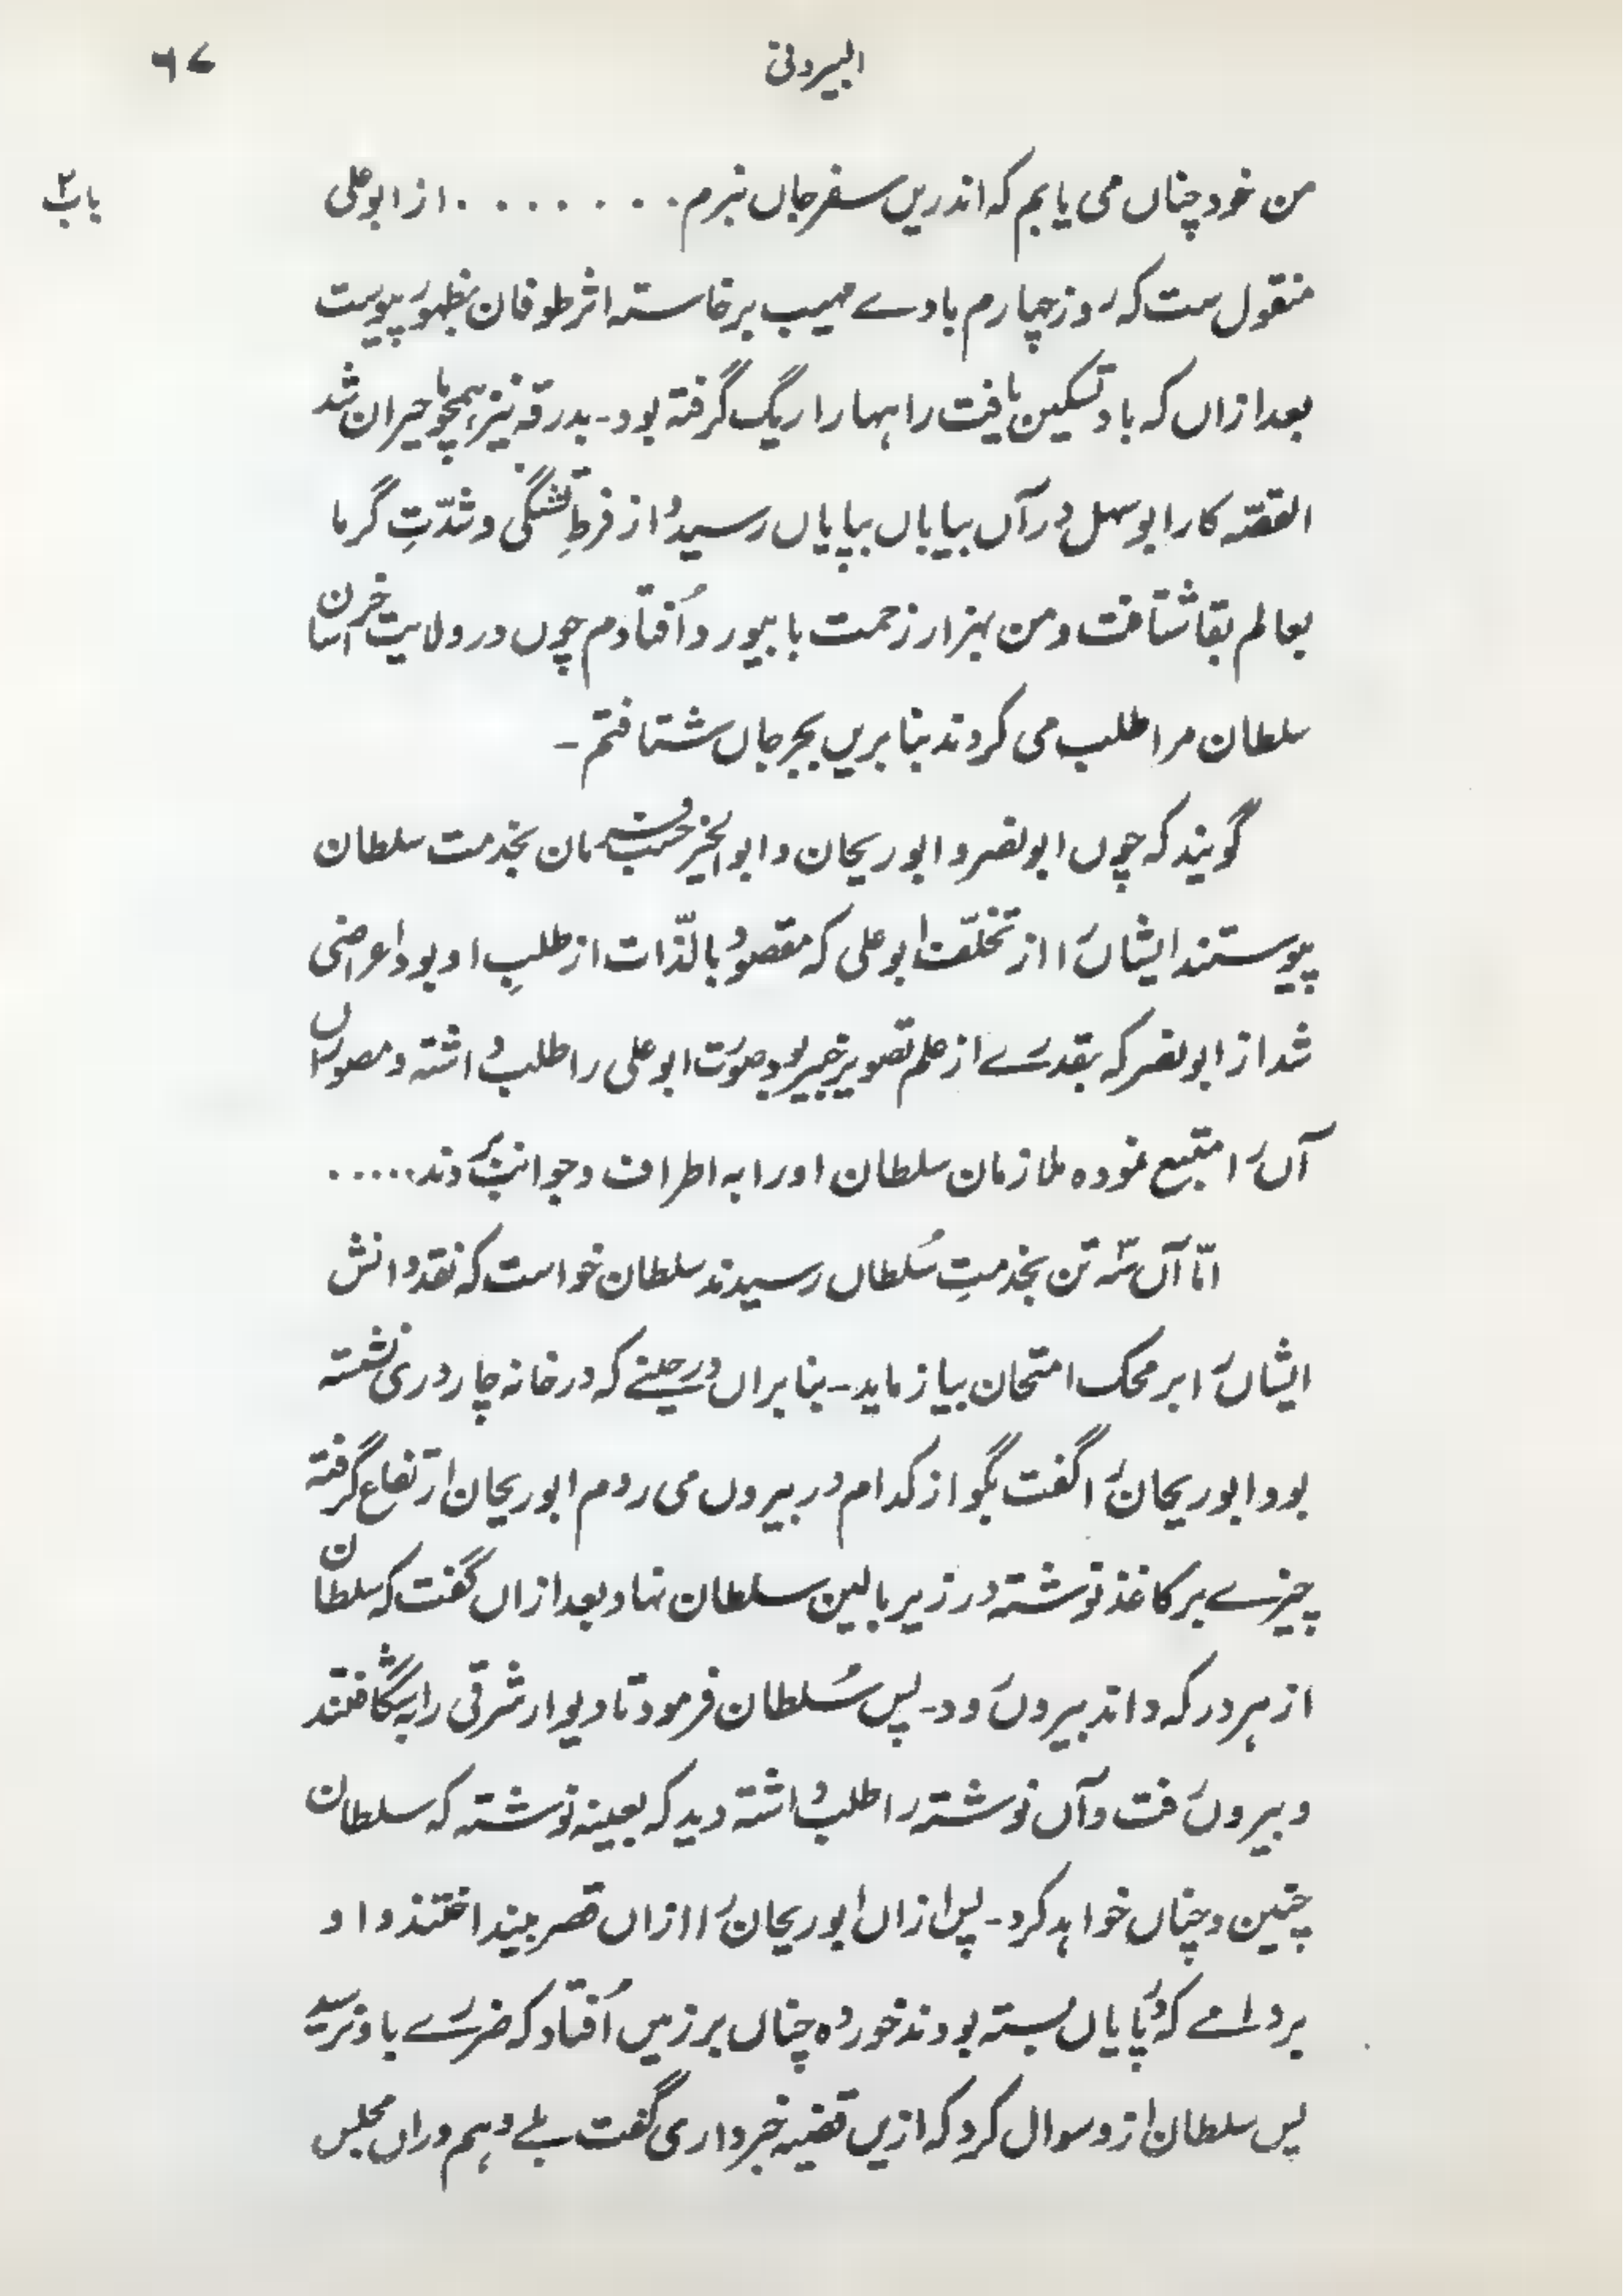 البیرونی
۶۷
باب ۲
من خود چناں می یابم که اندریں سفر جاں نبرم ........ از ابوعلی
منقول ست که روز چهارم بادے مهیب برخاسته اثر طوفان بظهور پیوست
بعد ازاں که باد تسکین یافت راهها را ریگ گرفته بود - بدرقه نیز همچو ما حیران شد
القصّه کار ابوسهل در آں بیاباں بپایاں رسید و از فرطِ تشنگی و شدّتِ گرما
بعالم بقا شتافت و من بهزار زحمت بابیورد اُفتادم چوں در ولایت خراسان
سلطان مرا طلب می کردند بنا بریں بجرجاں شتافتم -
گویند که چوں ابونصر و ابوریحان و ابوالخیر حسب فرمان بخدمت سلطان
پیوستند ایشاں را از تخلّف ابوعلی که مقصود بالذّات از طلبِ او بود اعراضی
شد از ابونصر که بقدرے از علم تصویر خبیر بود صورت ابوعلی را طلب داشته و مصوراں
آں را متتبع نموده ملازمان سلطان او را به اطراف و جوانب بردند .....
امّا آں سه تن بخدمتِ سُلطاں رسیدند سلطان خواست که نقد دانش
ایشاں را بر محک امتحان بیازماید - بنا براں در حینے که در خانه چار دری نشسته
بود ابوریحان را گفت بگو از کدام در بیروں می روم ابوریحان ارتفاع گرفته
چیزے بر کاغذ نوشته در زیر بالین سلطان نهاد بعد ازاں گفت که سلطان
از هر در که داند بیروں رود - پس سُلطان فرمود تا دیوار شرقی را بشگافتند
و بیروں رفت و آں نوشته را طلب داشته دید که بعینه نوشته که سلطان
چنین و چناں خواهد کرد - پس ازاں ابوریحان را ازاں قصر بینداختند و او
بر دامے که در پایاں بسته بودند خورده چناں بر زمیں اُفتاد که ضررے باو نرسید
پس سلطان ازو سوال کرد که ازیں قضیه خبر داری گفت بلے و هم دراں مجلس